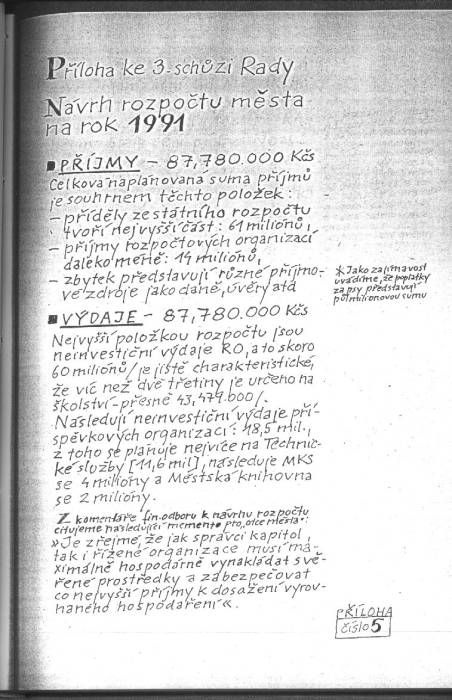 Příloha ke 3. schůzi Rady
Návrh rozpočtu města
na rok 1991
PŘÍJMY – 87,780.000 Kčs
Celková naplánovaná suma příjmů
je souhrnem těchto položek:
– příděly ze státního rozpočtu
tvoří nejvyšší část: 61 milionů,
– příjmy rozpočtových organizací
daleko méně: 14 milionů,
– zbytek představují různé příjmo-
vé zdroje jako daně, úvěry atd
* Jako zajímavost
uvádíme, že poplatky
za psy představují
půlmilionovou sumu
VÝDAJE – 87,780.000 Kčs
Nejvyšší položkou rozpočtu jsou
neinvestiční výdaje RO, a to skoro
60 milionů /je jistě charakteristické,
že víc než dvě třetiny je určeno na
školství – přesně 43,479.000/.
Následují neinvestiční výdaje pří-
spěvkových organizací: 18,5 mil.,
z toho se planuje nejvíce na Technic-
ké služby [11,6 mil], následuje MKS
se 4 miliony a Městská knihovna
se 2 miliony.
Z komentáře fin. odboru k návrhu rozpočtu
citujeme následující memento pro „otce města“:
»Je zřejmé, že jak správci kapitol,
tak i řízené organizace musí ma-
ximálně hospodárně vynakládat svě-
řené prostředky a zabezpečovat
co nejvyšší příjmy k dosažení vyrov-
naného hospodaření«.
PŘÍLOHA
číslo 5